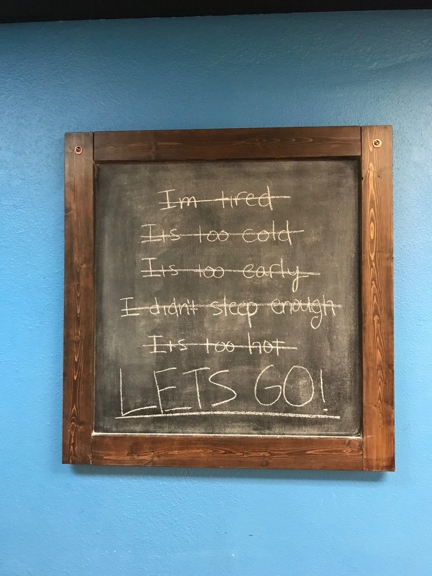 Im tired
Its too cold
Its too early
I didn't sleep enough
Its too hot
LETS GO!